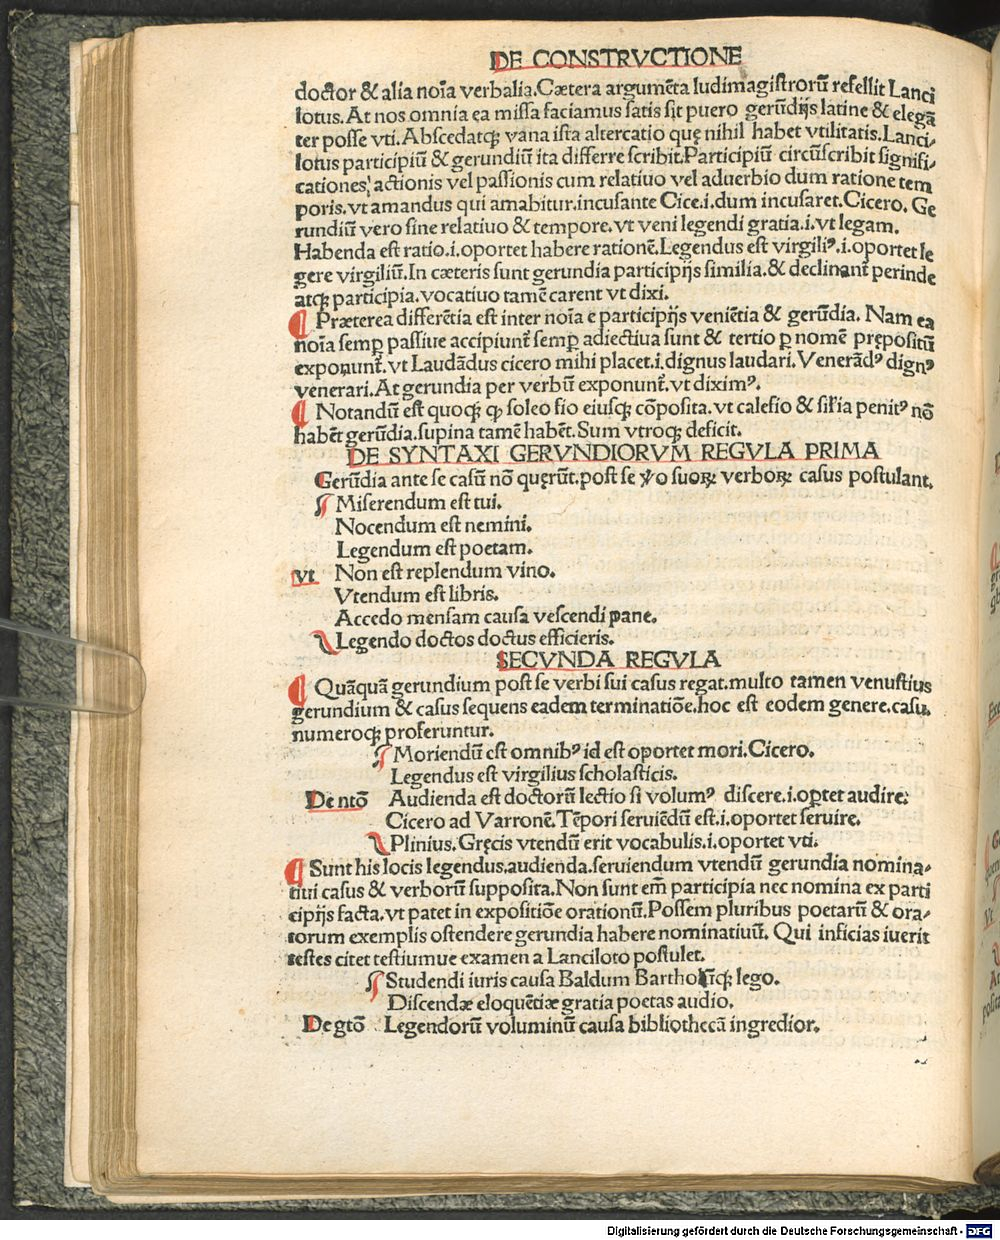 DE CONSTRVCTIONE
doctor & alia noīa verbalia.Cætera argumēta ludimagistrorū refellit Lanci
lotus.At nos omnia ea missa faciamus satis sit puero gerūdijs latine & elegā
ter posse vti.Abscedatqꝫ vana ista altercatio quę nihil habet vtilitatis.Lanci-
lotus participiū & gerundiū ita differre scribit.Participiū circūscribit signifi-
cationes, actionis vel passionis cum relatiuo vel aduerbio dum ratione tem
poris.vt amandus qui amabitur.incusante Cice.i.dum incusaret.Cicero. Ge
rundiū vero sine relatiuo & tempore.vt veni legendi gratia.i.vt legam.
Habenda est ratio.i.oportet habere rationē.Legendus est virgiliꝰ.i.oportet le
gere virgiliū.In cæteris sunt gerundia participijs similia.& declinant perinde
atqꝫ participia.vocatiuo tamē carent vt dixi.
¶ Præterea differētia est inter noīa e participijs veniētia & gerūdia. Nam ea
noīa semꝑ passiue accipiunt᷑ semꝑ adiectiua sunt & tertio ꝑ nomē prępositū
exponunt᷑.vt Laudādus cicero mihi placet.i.dignus laudari. Venerādꝰ dignꝰ
venerari.At gerundia per verbū exponunt᷑.vt diximꝰ.
¶ Notandū est quoqꝫ ꝙ soleo fio eiusqꝫ cōposita.vt calefio & sił'ia penitꝰ nō
habēt gerūdia.supina tamē habēt.Sum vtroqꝫ deficit.
DE SYNTAXI GERVNDIORVM REGVLA PRIMA
Gerūdia ante se casū nō quęrūt.post se v̊o suoꝝ verboꝝ casus postulant.
Miserendum est tui.
Nocendum est nemini.
Legendum est poetam.
vt Non est replendum vino.
Vtendum est libris.
Accedo mensam causa vescendi pane.
Legendo doctos doctus efficieris.
SECVNDA REGVLA
¶ Quāquā gerundium post se verbi sui casus regat.multo tamen venustius
gerundium & casus sequens eadem terminatiōe.hoc est eodem genere.casu.
numeroqꝫ proferuntur.
Moriendū est omnibꝰ id est oportet mori.Cicero.
Legendus est virgilius scholasticis.
De ntō Audienda est doctorū lectio si volumꝰ discere.i.optet audire:
Cicero ad Varronē.Tēpori seruiēdū est.i.oportet seruire.
Plinius.Gręcis vtendū erit vocabulis.i.oportet vti.
¶ Sunt his locis legendus.audienda.seruiendum vtendū gerundia nomina-
tiui casus & verborū supposita.Non sunt em̄ participia nec nomina ex parti
cipijs facta.vt patet in expositiōe orationū.Possem pluribus poetarū & ora-
torum exemplis ostendere gerundia habere nominatiuū. Qui inficias iuerit
testes citet testiumue examen a Lanciloto postulet.
Studendi iuris causa Baldum Bartholūqꝫ lego.
Discendæ eloquētiæ gratia poetas audio.
De gtō Legendorū voluminū causa bibliothecā ingredior.
Digitalisierung gefördert durch die Deutsche Forschungsgemeinschaft - DFG